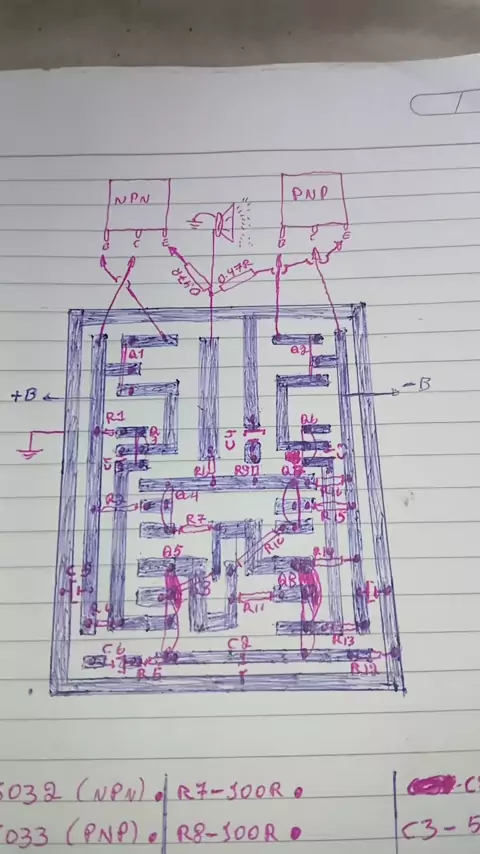 NPN
PNP
B C E
B C E
0.47R
0.47R
Q1
Q2
+B
-B
R1
Q3
Q6
C1
C3
R9
Q7
R2
Q4
R15
R7
R10
Q5
Q8
R14
C5
R11
R4
R13
C6
R5
C2
R12
5032 (NPN). R7-100R.
5033 (PNP). R8-100R. C3-5